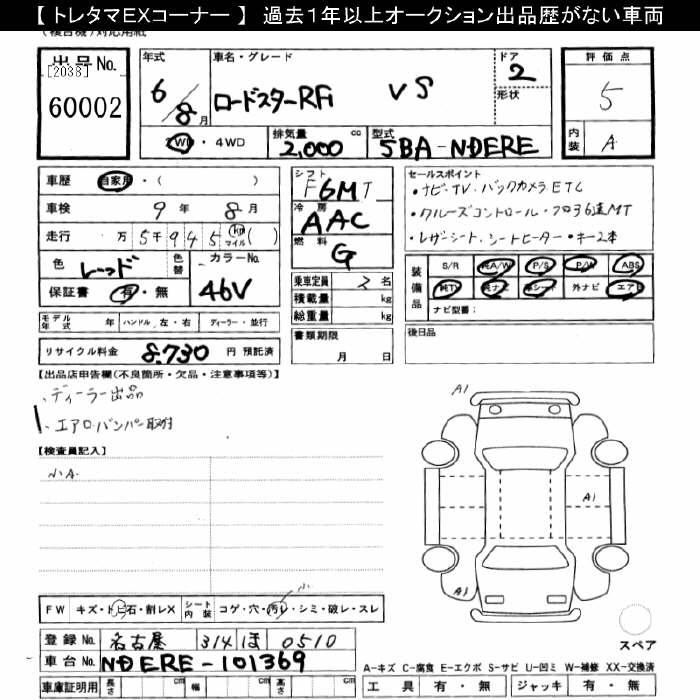 【 トレタマEXコーナー 】 過去1年以上オークション出品歴がない車両
(複合機)対応用紙
出品No.
[2038]
60002
年式
6/8月
車名・グレード
ロードスターRFi VS
ドア
2
形状
評価点
5
内装
A
2WD・4WD
排気量
2,000
cc
型式
5BA-NDERE
車歴
自家用・( )
車検
9年 8月
走行
万 5千 9 4 5 km マイル ( )
色
レッド
色替
カラーNo.
46V
保証書
有・無
シフト
F6MT
冷房
AAC
燃料
G
乗車定員
2名
積載量
kg
総重量
kg
書類期限
月 日
セールスポイント
・ナビ・TV・バックカメラ ETC
・クルーズコントロール・フロア6速MT
・レザーシート、シートヒーター・キー2本
装備品
S/R
純A/W
P/S
P/W
ABS
純TV
純ナビ
革シート
外ナビ
エアB
ナビ型番:
後日品
モデル年式
年
ハンドル
左・右
ディーラー・並行
リサイクル料金
8,730
円 預託済
【出品店申告欄(不良箇所・欠品・注意事項等)】
、ディーラー出品
、エアロバンパー取付
【検査員記入】
小A
FW
キズ・トビ石・割レX
シート内装
コゲ・穴・汚レ・シミ・破レ・スレ
小
A1
A1
A1
スペア
登録No.
名古屋 314 ほ 0510
車台No.
NDERE-101369
車庫証明用
長さ
cm
幅
cm
高さ
cm
A―キズ C―腐食 E―エクボ S―サビ U―凹ミ W―補修 XX―交換済
工具
有・無
ジャッキ
有・無